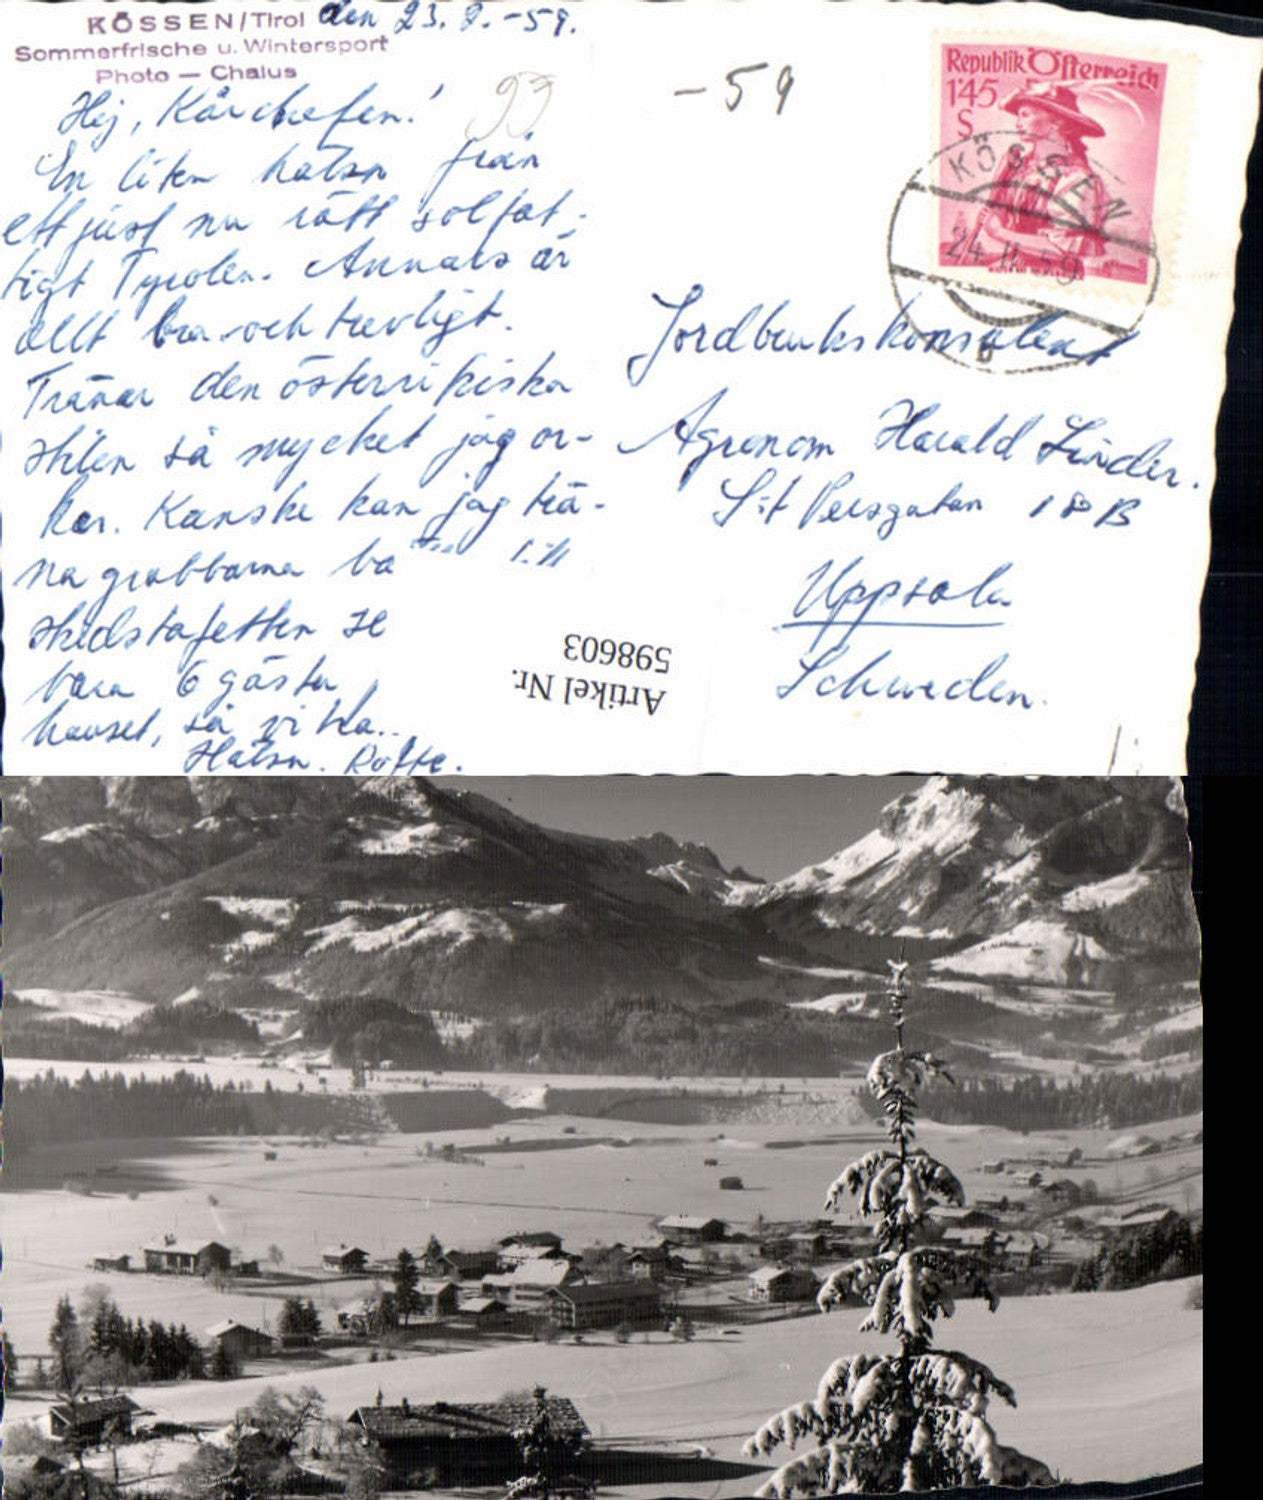 KÖSSEN/Tirol den 23.2.-59.
Sommerfrische u. Wintersport
Photo — Chalus
93
Hej, Kårchefen!
En liten hälsn från
ett just nu rätt solfat-
tigt Tyrolen. Annars är
allt bra och trevligt.
Tränar den österrikiska
stilen så mycket jag or-
kar. Kanske kan jag trä-
na grabbarna till
skidstafetten
bara 6 gäster
huset, så vi
Hälsn. Roffe.
-59
Republik Österreich
1'45
S
KÖSSEN
24.II.59
b
Jordbrukskonsulent
Agronom Harald Linder.
S:t Persgatan 18 B
Uppsala
Schweden.
Artikel Nr.
598603